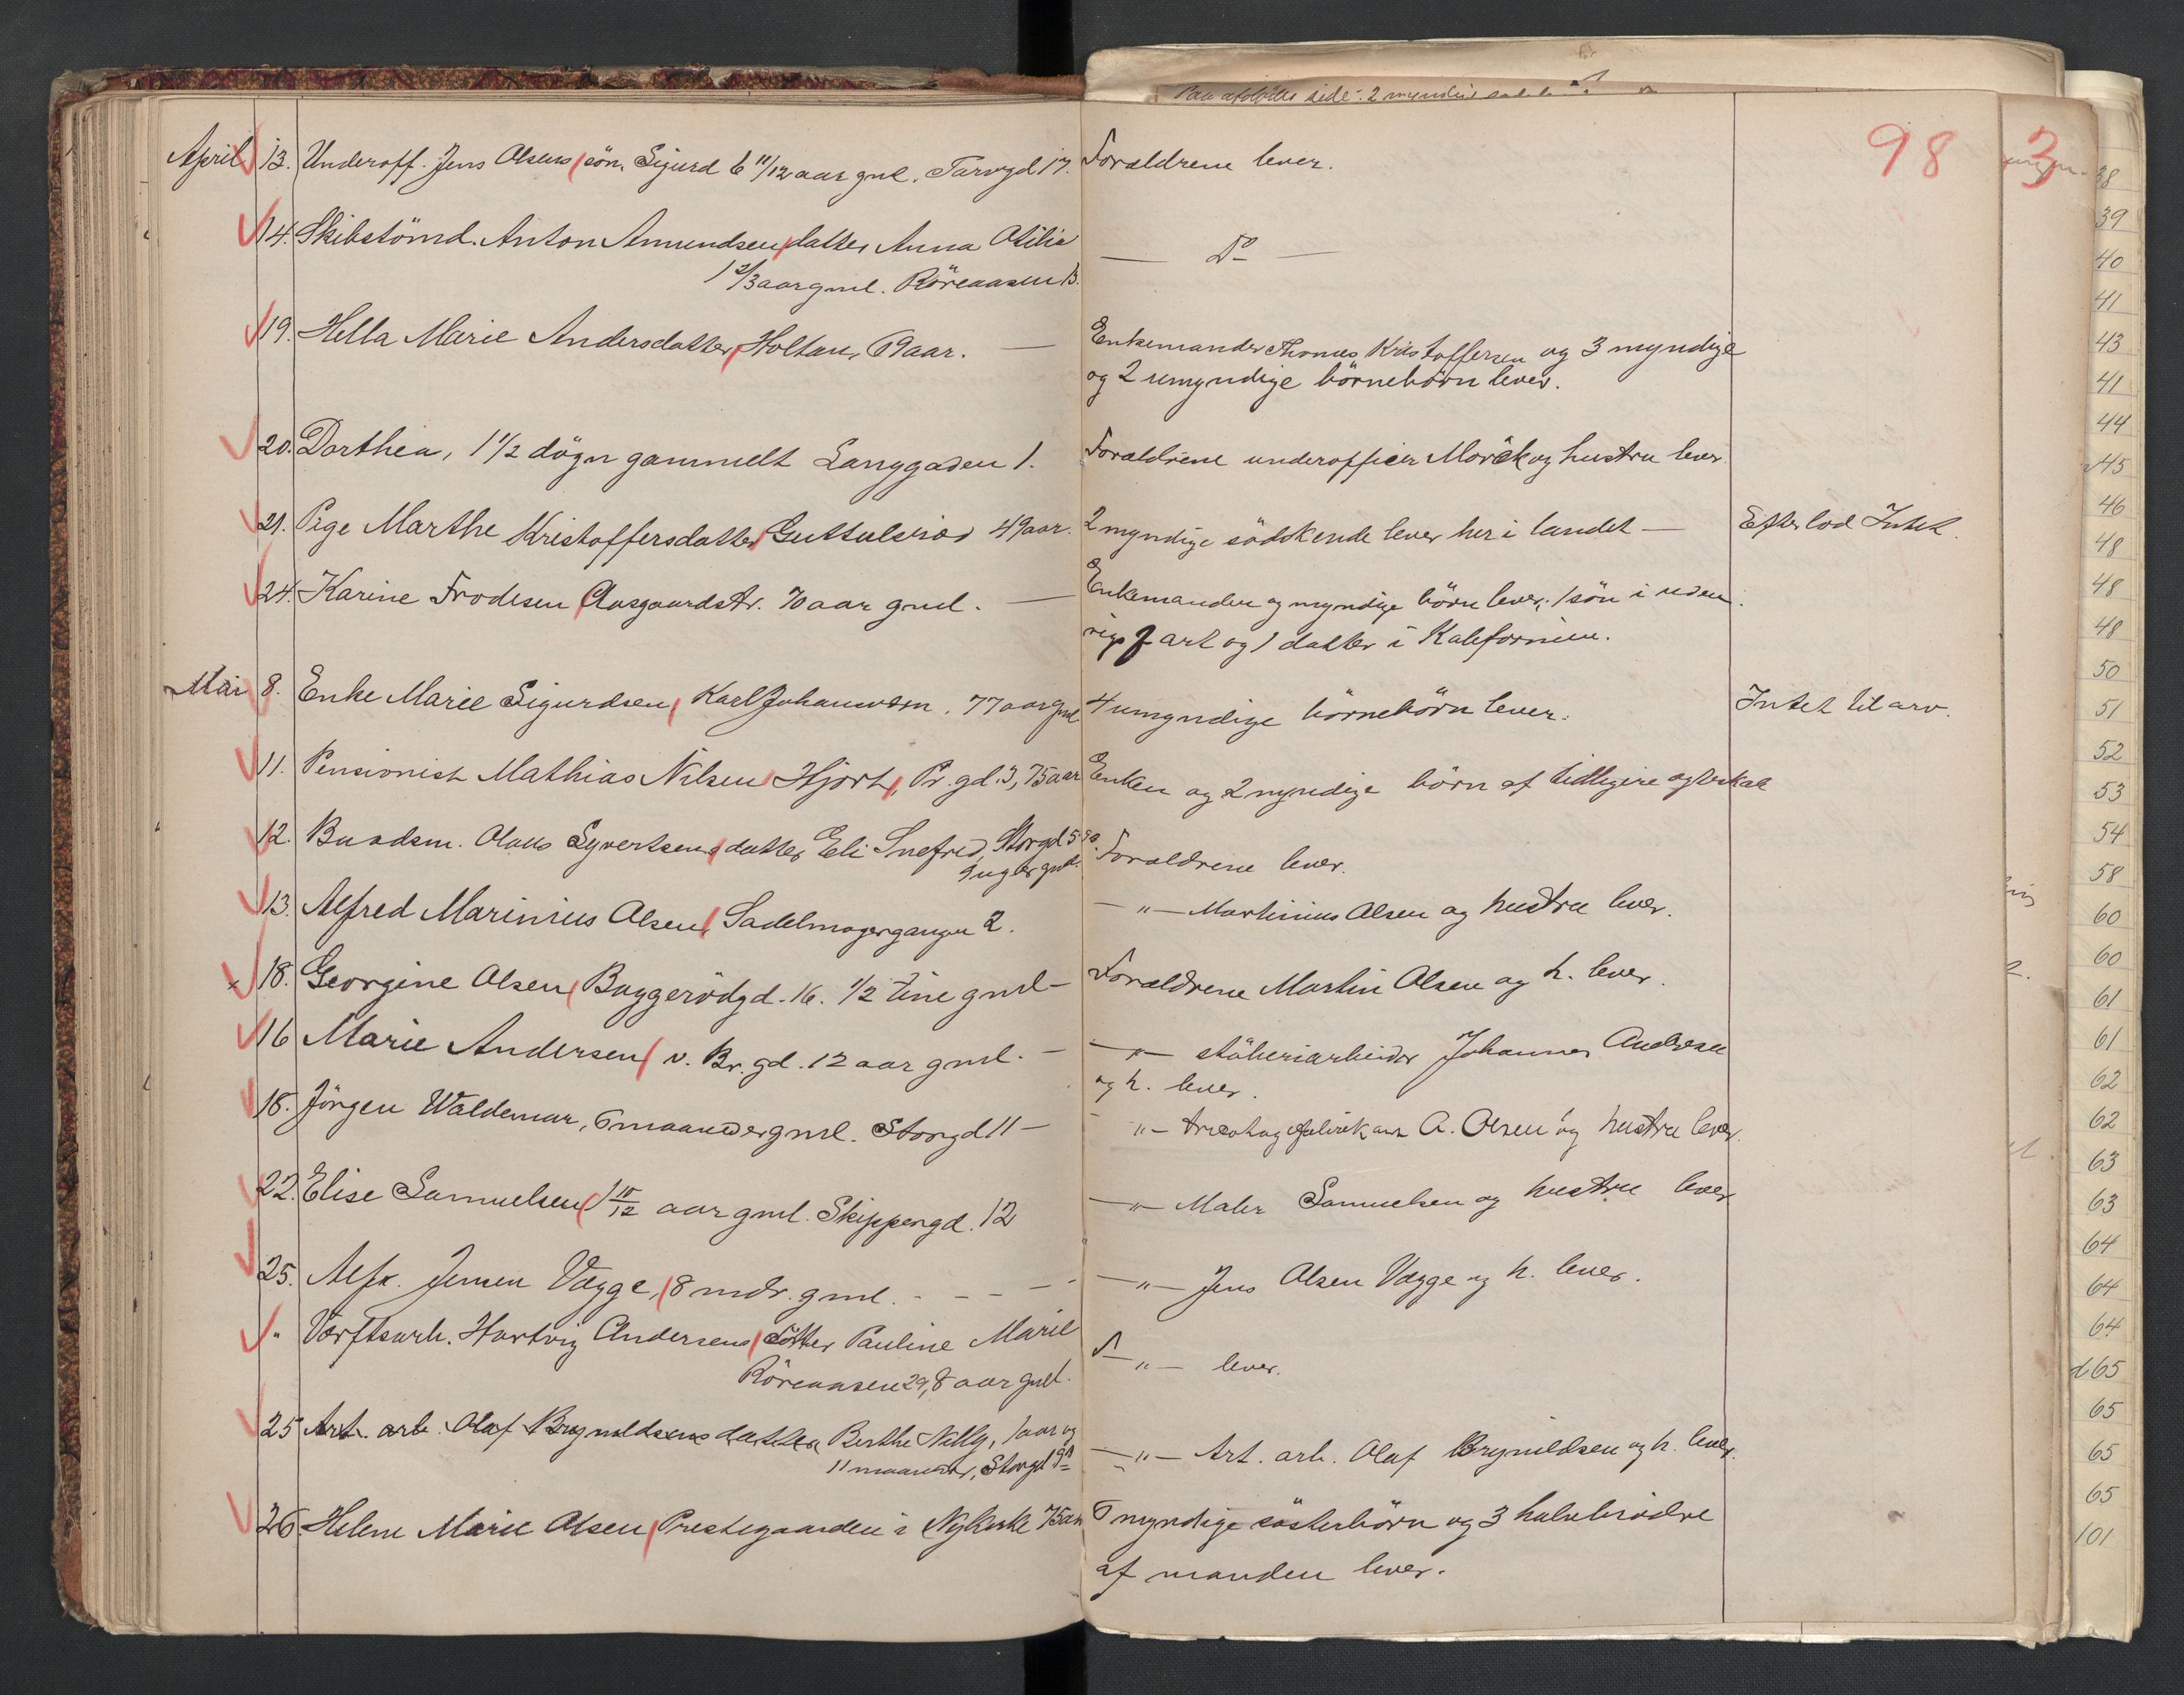 98
April 13. Underoff. Jens Olsens sön Sigurd 6 11/12 aar gml. Torvgd 17. Forældrene lever.
14. Skibstömd. Anton Amundsen datter Anna Otilie — Do —
1 2/3 aar gml. Röreaasen 13.
19. Hella Marie Andersdatter, Holtan, 69 aar. — Enkemanden Thomas Kristoffersen og 3 myndige
og 2 umyndige börnebörn lever.
20. Dorthea, 1 1/2 dögn gammelt Langgaden 1. Forældrene underofficer Mörck og hustru lever.
21. Pige Marthe Kristoffersdatter 49 aar. 2 myndige södskende lever her i landet — Efterlod Intet.
24. Karine Frodesen Aasgaardstr. 70 aar gml. — Enkemanden og myndige börn lever; 1 sön i uden
rigsfart og 1 datter i Kalifornien.
Mai 8. Enke Marie Sigurdsen, Karljohansvern. 77 aar gml 4 umyndige börnebörn lever. Intet til arv.
11. Pensionist Mathias Nilsen Hjort, Pr. gd. 3, 75 aar Enken og 2 myndige börn af tidligere ægteskab
12. Baadsm. Olaus Syvertsens datter Eli Snefrid, Storgd 5 Forældrene lever.
9 uger gml.
13. Alfred Marinius Olsen, Sadelmagergangen 2. — " — Martinius Olsen og hustru lever.
× 18. Georgine Olsen, Baggerödgd. 16. 1/2 time gml — Forældrene Martin Olsen og h. lever.
16 Marie Andersen, v. Br. gd. 12 aar gml. — — " — Johannes Andersen
og h. lever.
18. Jörgen Waldemar, 6 maaneder gml. Storgd 11 — — " — A. Olsen og hustru lever.
22. Elise Samuelsen, 1 10/12 aar gml. Skippergd. 12 — " — Maler Samuelsen og hustru lever
25. Alfr. Jensen Vægge, 8 mdr. gml. - - - - — " — Jens Olsen Vægge og h. lever.
" Værftsarb. Hartvig Andersens datter Pauline Marie F — " — lever.
Röreaasen 29, 8 aar gml.
25 Art. arb. Olaf Brynildsens datter Berthe Nilly, 1 aar og — " — Art. arb. Olaf Brynildsen og h. lever.
11 maaneder, Storgd
26. Helene Marie Olsen, Prestegaarden i Nykirke 75 aar 6 myndige sösterbörn og 3 halvbrödre
af manden lever.
3
38
39
40
41
43
41
44
45
46
48
48
48
50
51
52
53
54
58
60
60
61
61
62
62
63
63
64
64
64
65
65
65
65
101